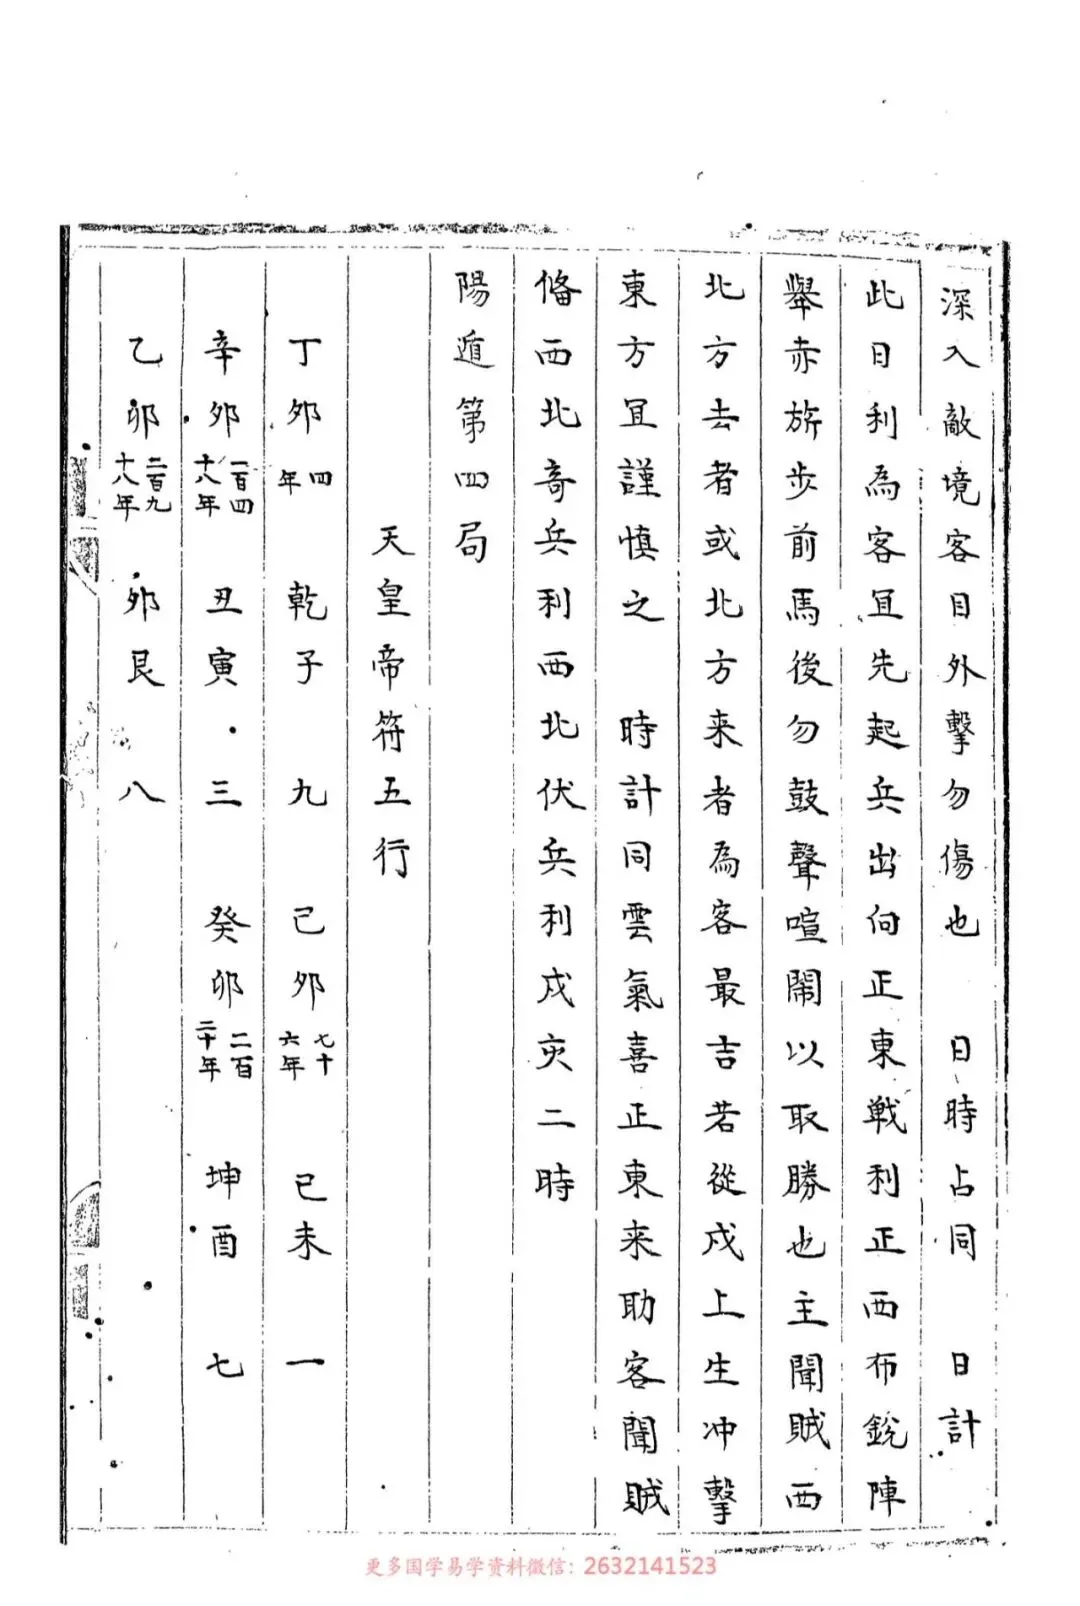 深入敵境客目外擊勿傷也　日時占同　日計
此日利為客宜先起兵出向正東戰利正西布銳陣
舉赤旂步前馬後勿鼓聲喧鬧以取勝也主聞賊西
北方去者或北方来者為客最吉若從戌上生冲擊
東方宜謹慎之　時計同雲氣喜正東来助客聞賊
偹西北竒兵利西北伏兵利戌亥二時
陽遁第四局
天皇帝符五行
丁夘四年　乾子　九　己夘七十六年　已未　一
辛夘一百四十八年　丑寅　三　癸卯二百二十年　坤酉　七
乙卯二百九十八年　夘艮　八
更多国学易学资料微信：2632141523